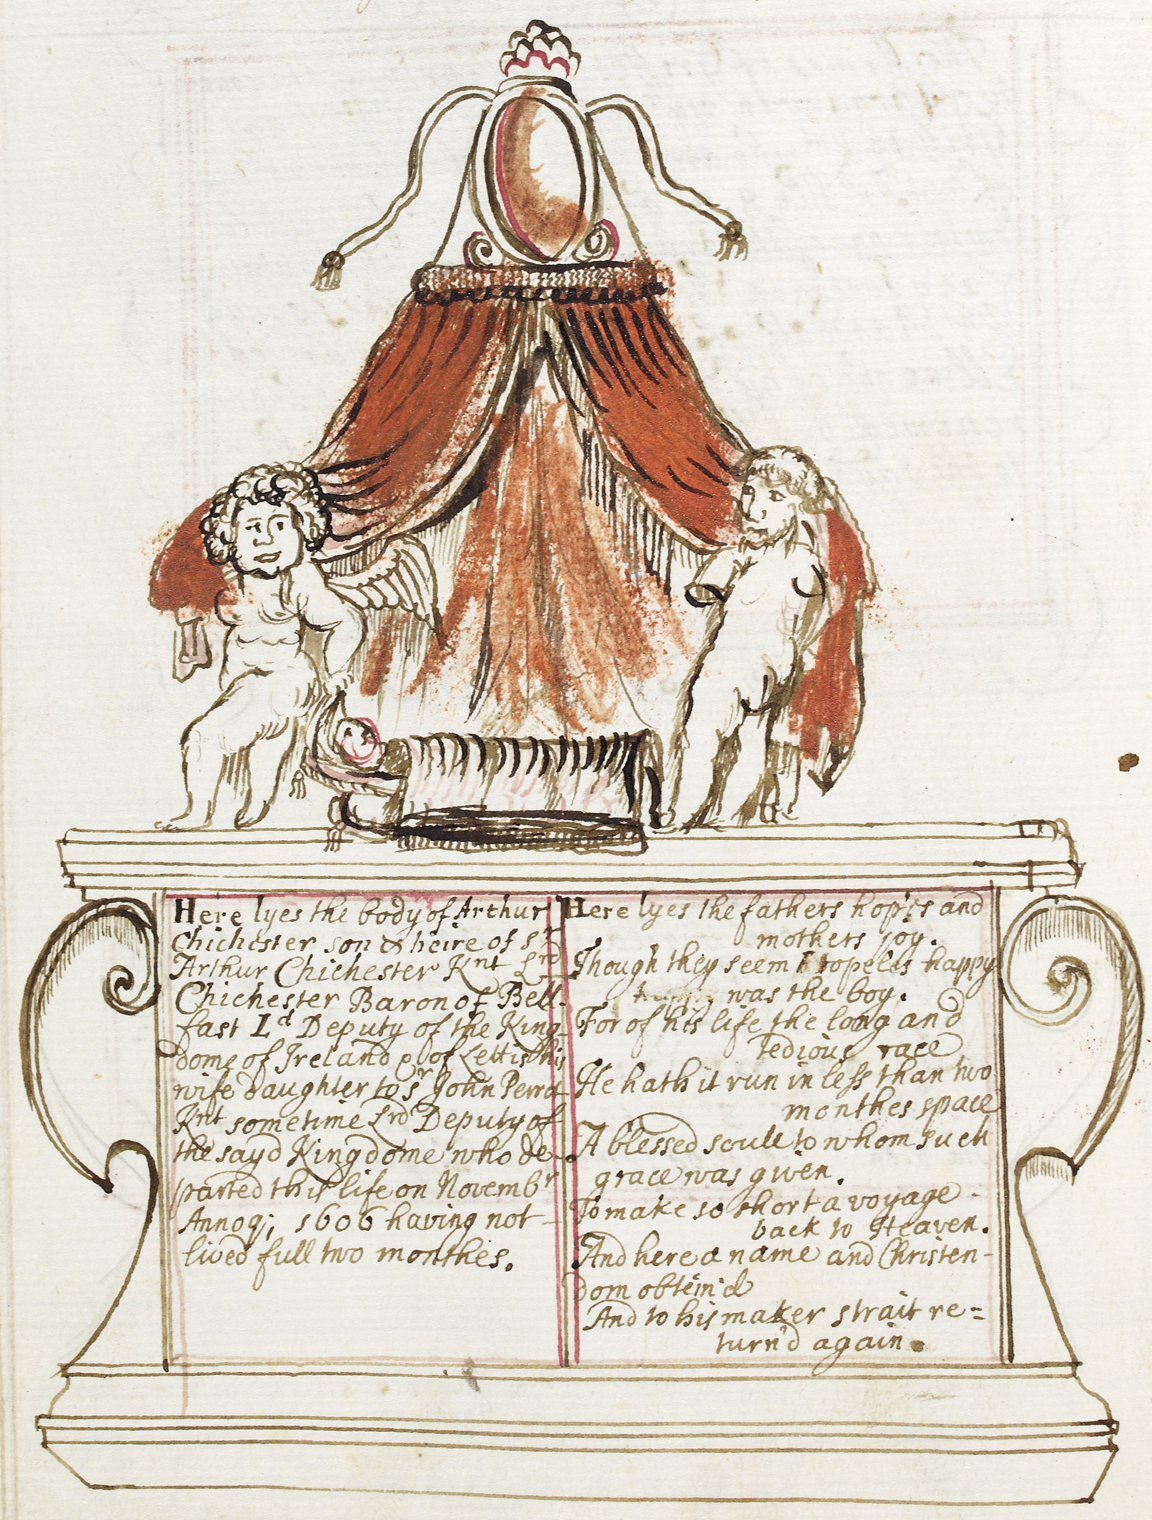 Here lyes the body of Arthur
Chichester son & heire of sr
Arthur Chichester Knt Lrd
Chichester Baron of Bell-
fast Ld Deputy of the King-
dome of Ireland & of Lettis his
wife daughter to sr John Perro
Knt sometime Lrd Deputy of
the sayd Kingdome who de-
parted this life on Novembr
Annoq; 1606 having not
lived full two monthes.
Here lyes the fathers hopes and
mothers joy.
Though they seem hopeles happy
was the boy.
For of his life the long and
tedious race
He hath it run in less than two
monthes space
A blessed soule to whom such
grace was given.
To make so short a voyage
back to Heaven.
And here a name and Christen-
dom obtein'd
And to his maker strait re=
turn'd again.